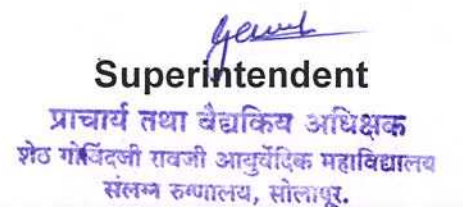 Superintendent
प्राचार्य तथा वैद्यकिय अधिक्षक
शेठ गोविंदजी रावजी आयुर्वेदिक महाविद्यालय
संलग्न रुग्णालय, सोलापूर.